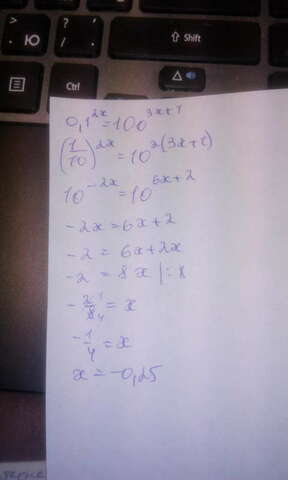 > .
Ю
?
/ .
⇧ Shift
Ctrl
0,1^{2x}=100^{3x+1}
(1/10)^{2x}=10^{2(3x+1)}
10^{-2x}=10^{6x+2}
-2x=6x+2
-2=6x+2x
-2=8x |:8
-2^{1}/8_{4}=x
-1/4=x
x=-0,25